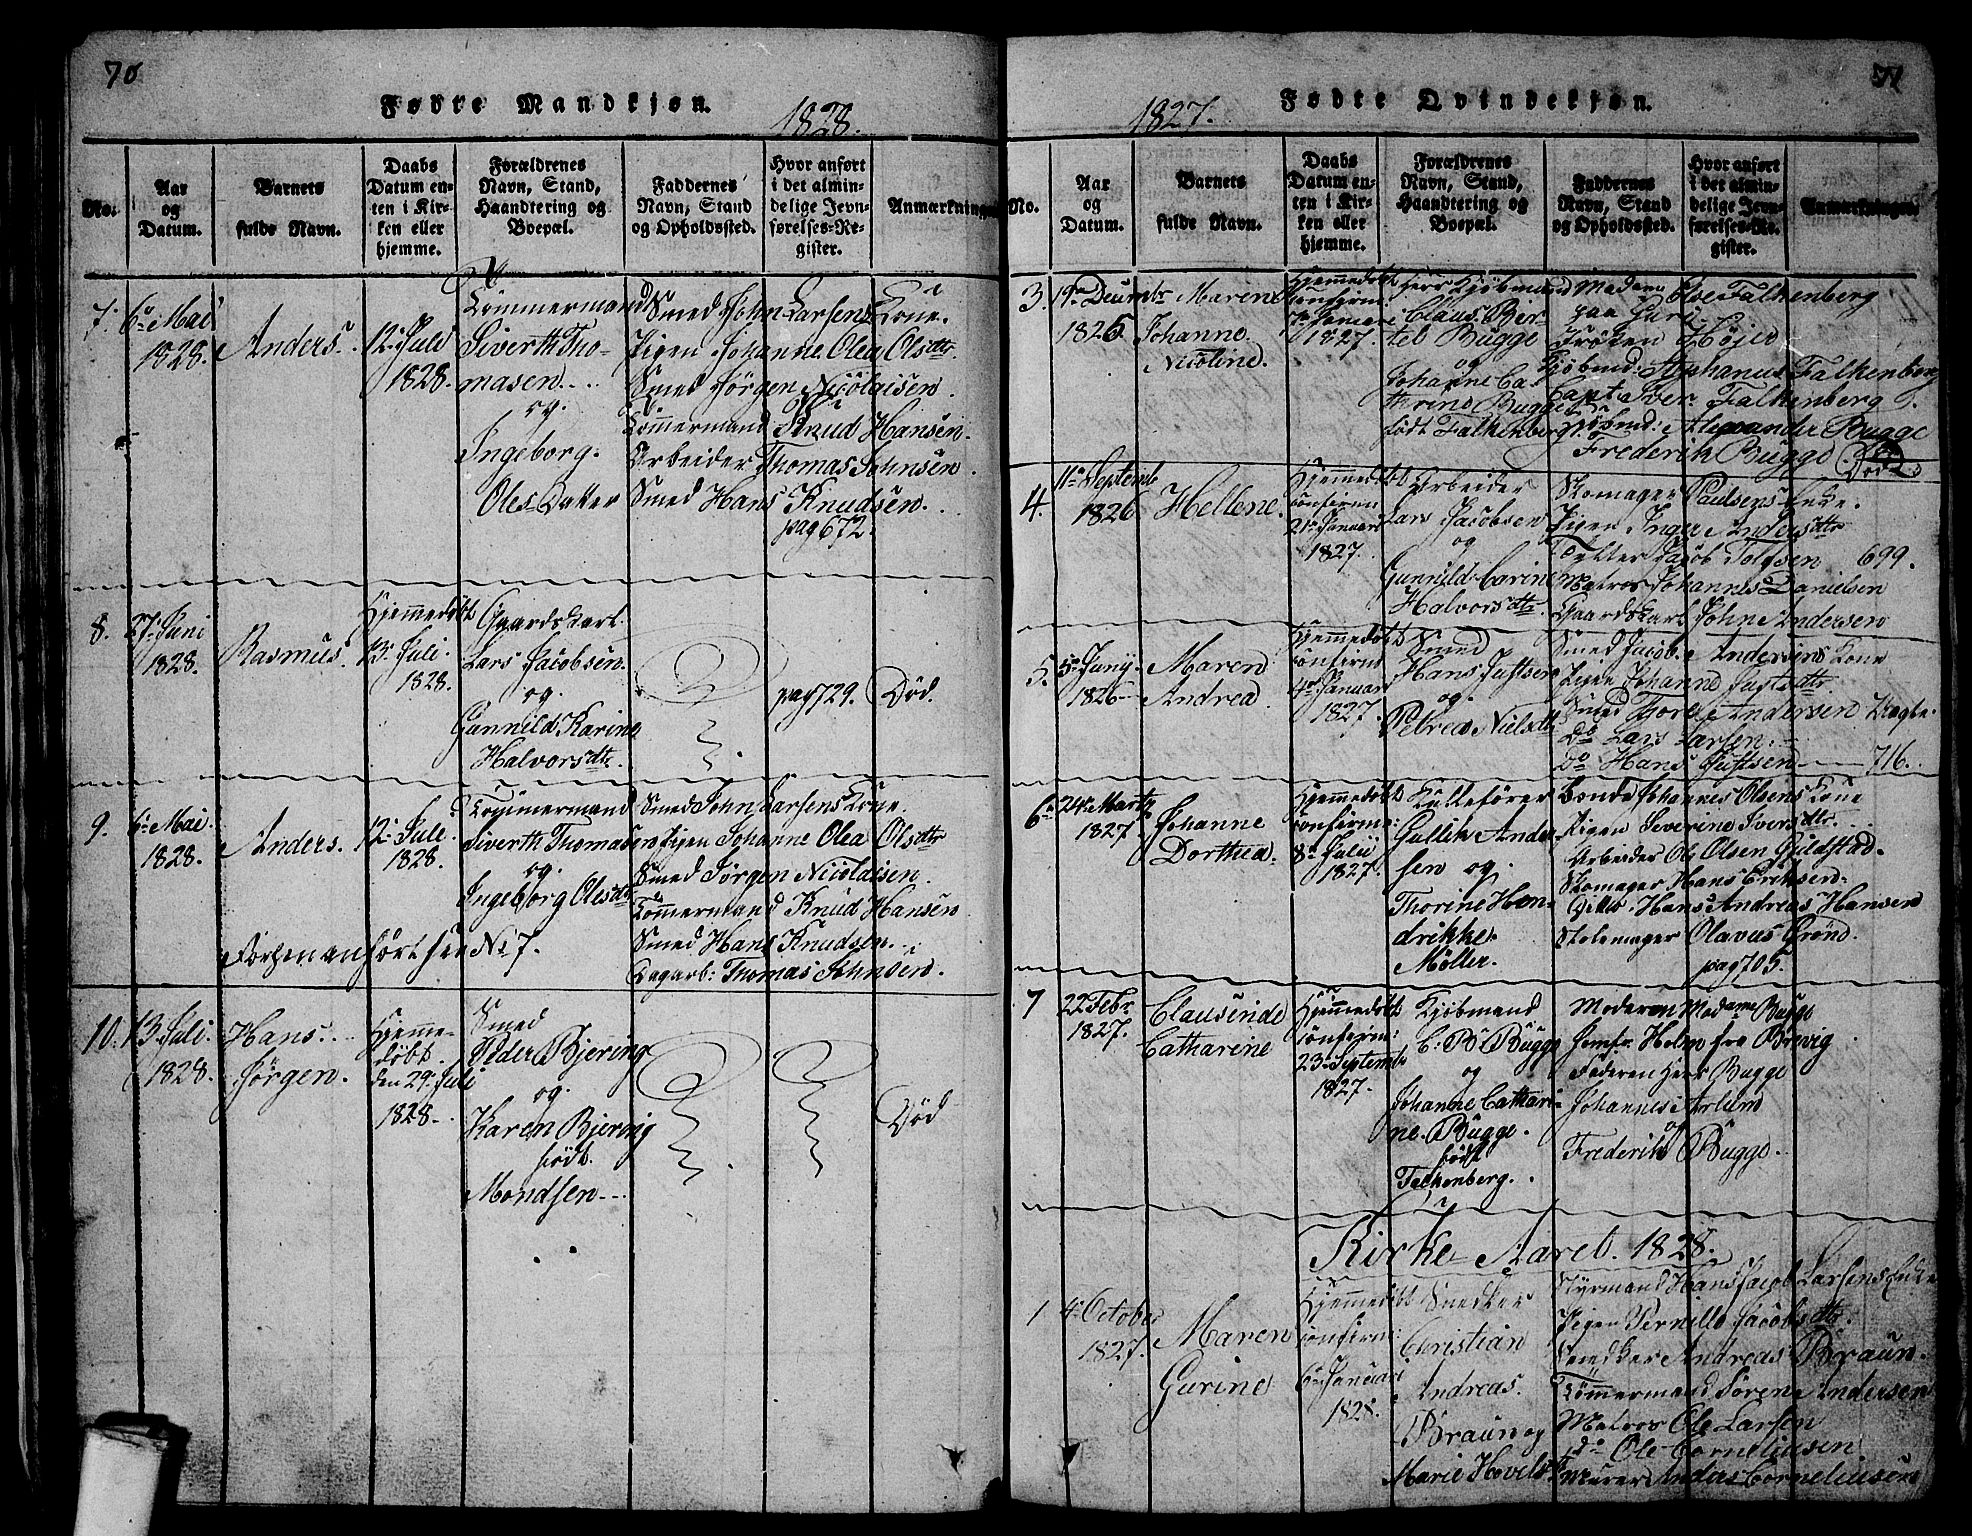 70
Fødte Mandkjøn.
1828.
No.
Aar og Datum.
Barnets fulde Navn.
Daabs Datum enten i Kirken eller hjemme.
Forældrenes Navn, Stand, Haandtering og Boepæl.
Faddernes Navn, Stand og Opholdssted.
Hvor anført i det almindelige Jevnførelses-Register.
Anmærkninger
7.
6te Mai
1828.
Anders.
12. Juli
1828.
Tömmermand
Siverth Tho-
masen
og
Ingeborg
Oles Datter
Smed John Larsens Kone.
Pigen Johanne Olea Olsdtr
Smed Jörgen Nicolaisen
Tömmermand Knud Hansen.
Arbeider Thomas Johnsen
Smed Hans Knudsen.
pag 672.
8.
27. Juni
1828.
Rasmus.
Hjemmedöbt
13. Juli
1828.
Gaardskarl
Lars Jacobsen
og
Gunnild Karine
Halvorsdtr
pag 729.
Död.
9.
6te Mai
1828.
Anders.
12. Juli
1828.
Tömmermand
Siverth Thomasen
og
Ingeborg Olesdtr
Smed John Larsens Kone.
Pigen Johanne Olea Olsdtr
Smed Jörgen Nicolaisen.
Tömmermand Knud Hansen
Smed Hans Knudsen.
Dagarb: Thomas Johnsen.
anfört see No 7.
10.
13. Juli
1828.
Hans
Jörgen.
Hjemme-
döbt.
den 29. Juli
1828.
Smed
Peder Bjering
og
Karen Bjering
födt
Mondsen
Död
71
Fødte Qvindekjøn.
1827.
No.
Aar og Datum.
Barnets fulde Navn.
Daabs Datum enten i Kirken eller hjemme.
Forældrenes Navn, Stand, Haandtering og Boepæl.
Faddernes Navn, Stand og Opholdssted.
Hvor anført i det almindelige Jevnførelses-Register.
Anmærkninger.
3.
1826
Maren
Johanne
Nicoline
Hjemmedöbt
confirm:
Januari
1827.
Herr Kjöbmand
Claus Ber-
tel Bugge
og
Johanne Ca-
thrine Bugge
födt Falkenberg
Madam Falkenberg
Fröken Höjer
Kjöbmd: Stephanus Falkenberg
Capt. Iver Falkenberg
Kjöbmd: Alexander Bugge
Frederik Bugge
Död
4.
11te Septemb
1826
Hellene.
Hjemmedöbt
confirm:
21. Januari
1827.
Arbeider
Lars Jacobsen
og
Gunnild Carine
Halvorsdtr
Skomager Paulsens Enke.
Pigen Inger Andersdtr
Jacob Tolfsen
Matros Johannes Danielsen
Gaardskarl John Andersen
699.
5.
5te Junij
1826
Maren
Andrea
Hjemmedöbt
confirm:
4de Januar
1827.
Smed
Hans Juftsen
og
Petrea Nielsdtr
Smed Jacob Andersens Kone
Pigen Johanne
Smed Tore Andersen
Do Lars Larsen
Do Hans Juftsen
716.
6.
24. Marty
1827
Johanne
Dorthea.
Hjemmedöbt
confirm:
8de Julii
1827.
Kullefører
Gullik Ander-
sen og
Thorine Hen-
drikke
Möller.
Bonde Johannes Olsens Kone
Pigen Severine Iversdtr
Arbeider Ole Olsen Guldstad
Skomager Hans Eriksen
Ditto Hans Andreas Hansen
Stolemager Olavus Grönd.
pag 705.
7
22 Febr
1827.
Clausinde
Catharine
Hjemmedöbt
confirm:
23. Septemb
1827.
Kjöbmand
C: B: Bugge
og
Johanne Cathari-
ne Bugge
födt
Falkenberg.
Moderen Madame Bugge
Jomfr: Holm fra Brevig
Faderen Herr Bugge
Johannes Arlund
og
Frederik Bugge.
Kirke Aaret 1828.
1
4. October
1827.
Maren
Gurine
Hjemmedöbt
confirm:
6te Januari
1828.
Snedker
Christian
Andreas
Braun og
Marie
Styrmand Hans Jacob Larsens Enke
Pigen Pernille Jacobsdtr.
Snedker Andreas Braun.
Tömmermand Sören Andersen
Matros Ole Larsen
do Ole Corneliusen
Murer Anders Corneliusen